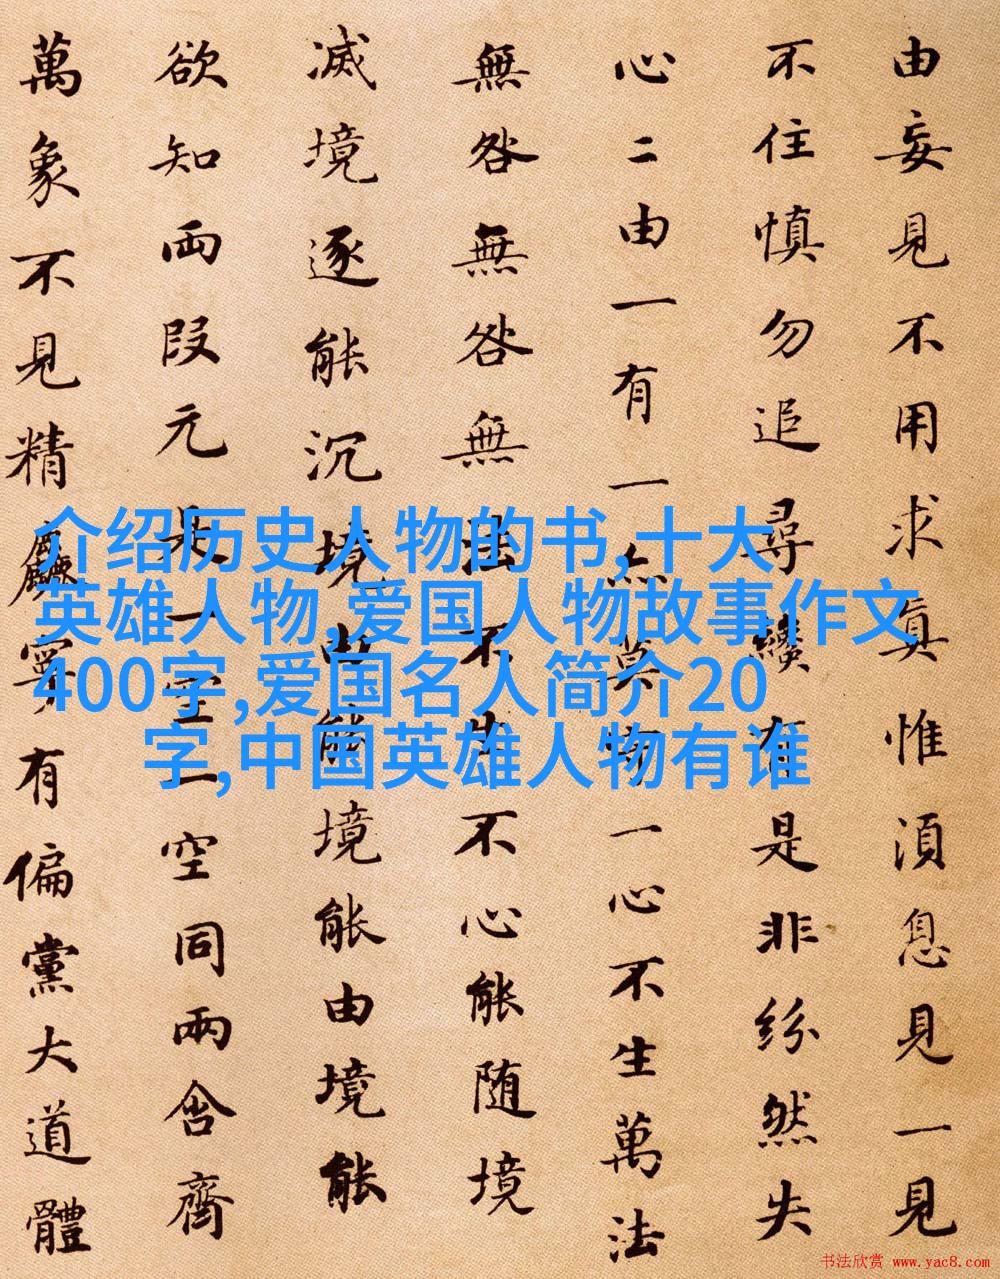 介绍历史人物的书,十大
英雄人物,爱国人物故事作文
400字,爱国名人简介20
字,中国英雄人物有谁
由妄見不用求真惟須息見一見
不住慎勿追尋纔有是非紛然失
心二由一有一亦莫守一心不生萬法
無咎無咎無法不生不心能随境
滅境逐能沉境由能境能由境能
欲知两段元是一空一空同兩含齊
萬象不見精麤寧有偏黨大道體
书法欣赏 www.yac8.com